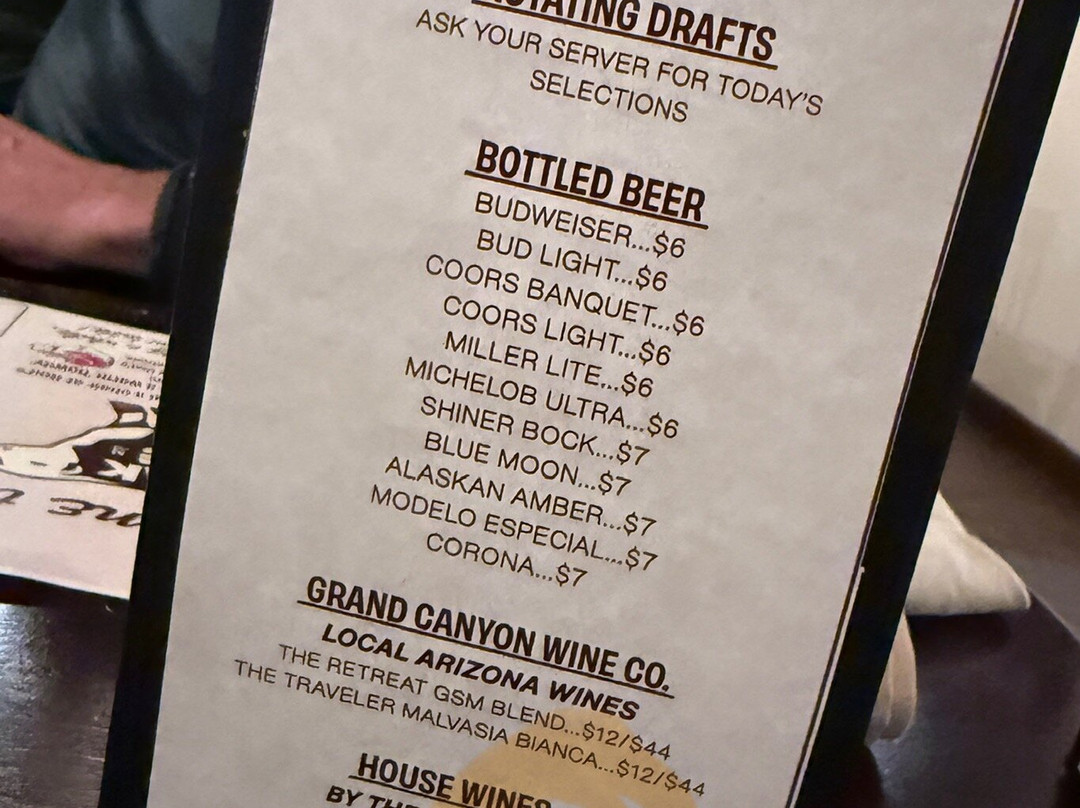 ROTATING DRAFTS
ASK YOUR SERVER FOR TODAY'S
SELECTIONS
BOTTLED BEER
BUDWEISER...$6
BUD LIGHT...$6
COORS BANQUET...$6
COORS LIGHT...$6
MILLER LITE...$6
MICHELOB ULTRA...$6
SHINER BOCK...$7
BLUE MOON...$7
ALASKAN AMBER...$7
MODELO ESPECIAL...$7
CORONA...$7
GRAND CANYON WINE CO.
LOCAL ARIZONA WINES
THE RETREAT GSM BLEND...$12/$44
THE TRAVELER MALVASIA BIANCA...$12/$44
HOUSE WINES
BY THE